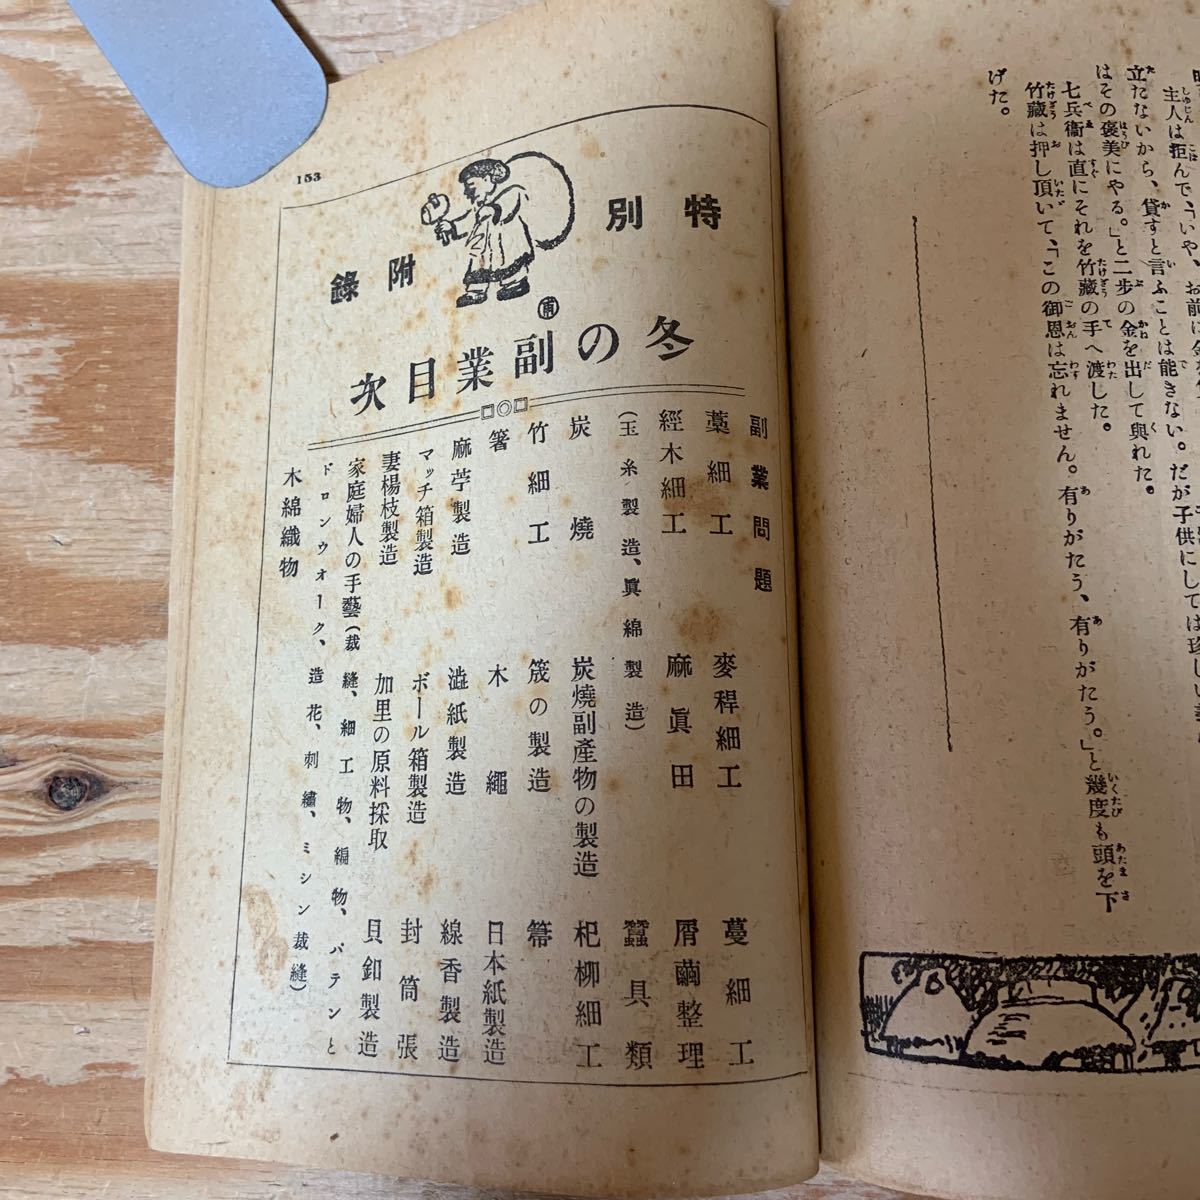 主人は拒んで、「いや、お前に金を
立たないから、貸すと言ふことは能きない。だが子供にしては珍しい
はその褒美にやる。」と二歩の金を出して與れた。
七兵衞は直にそれを竹藏の手へ渡した。
竹藏は押し頂いて、「この御恩は忘れません。有りがたう、有りがたう。」と幾度も頭を下
げた。
153
特別
附錄
冬の副業目次
副業問題
藁細工　麥稈細工　蔓細工
經木細工　麻眞田　屑繭整理
(玉糸製造、眞綿製造)　蠶具類
炭燒　炭燒副產物の製造　杞柳細工
竹細工　筬の製造　箒
箸　木繩　日本紙製造
麻苧製造　澁紙製造　線香製造
マッチ箱製造　ボール箱製造　封筒張
妻楊枝製造　加里の原料採取　貝釦製造
家庭婦人の手藝(裁縫、細工物、編物、バテンと
ドロンウオーク、造花、刺繡、ミシン裁縫)
木綿織物